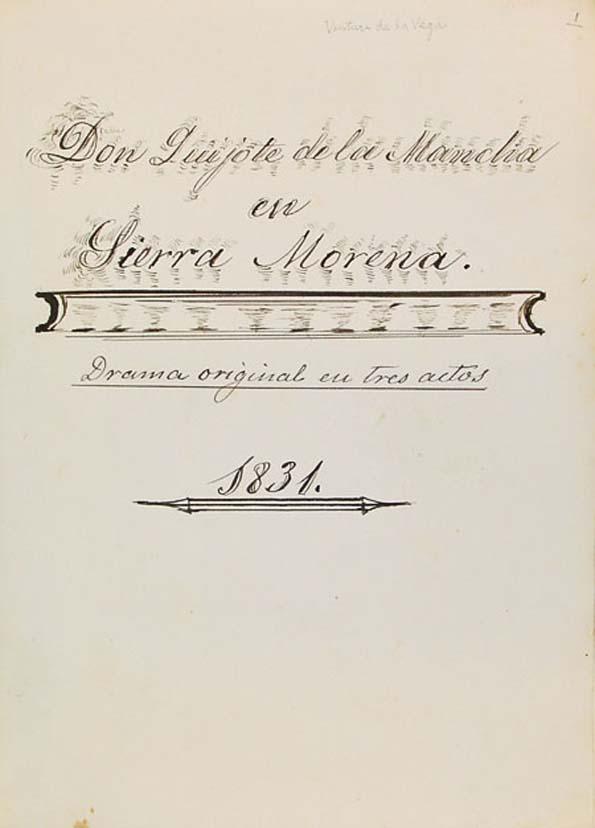 Ventura de la Vega
1
Don Quijote de la Mancha
en
Sierra Morena.
Drama original en tres actos
1831.